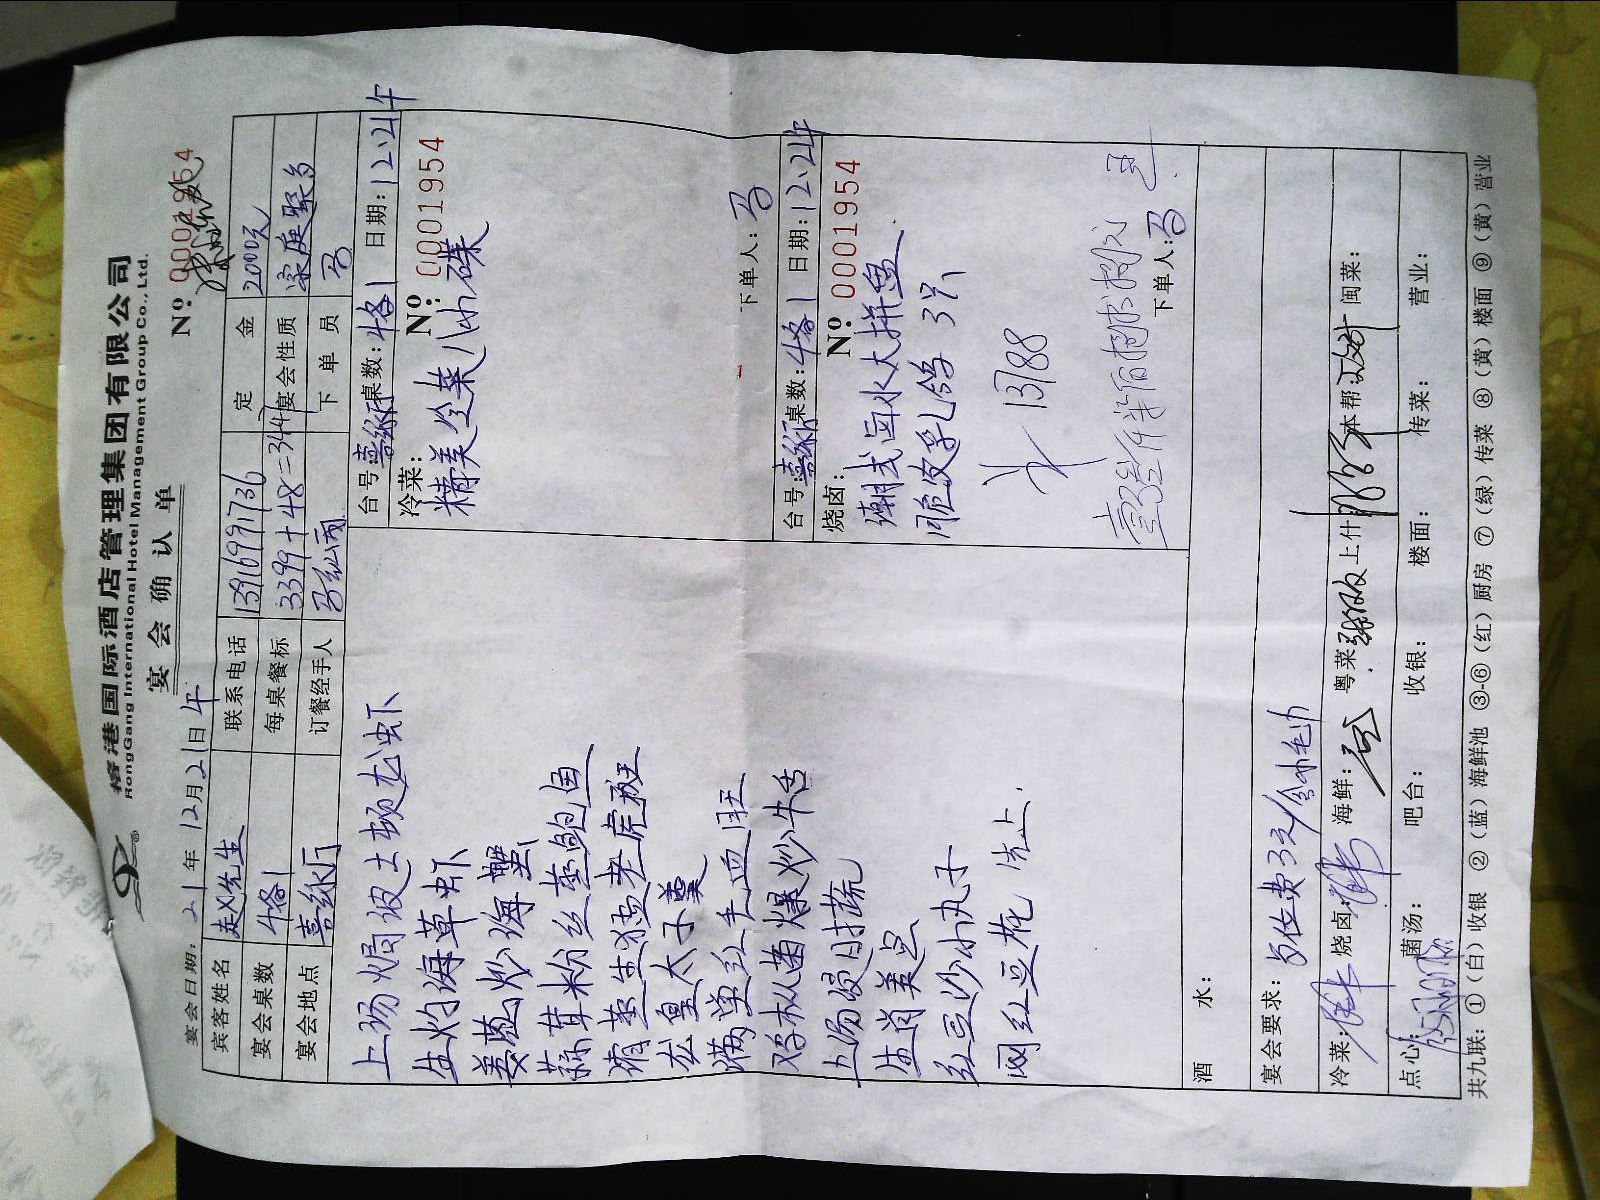 榕港国际酒店管理集团有限公司
RongGang International Hotel Management Group Co., Ltd.
宴会确认单
Nº 0001954
宴会日期: 21年12月21日午
宾客姓名 赵先生 联系电话 13916991736 定金 2000元
宴会桌数 4备1 每桌餐标 3399+48=3447 宴会性质 家庭聚多
宴会地点 喜缘厅 订餐经手人 下单员
上汤焗波士顿龙虾
生灼海草虾
姜葱炒海蟹
蒜茸粉丝蒸鲍鱼
清蒸生猛老虎斑
龙皇太子羹
满堂红毛血旺
鸡枞菌爆炒牛舌
上汤浸时蔬
生肖美点
红豆沙小丸子
网红豆花
台号: 喜缘厅 桌数: 4备1 日期: 12.21午
冷菜: Nº: 0001954
精美冷菜八小碟
下单人:
台号: 喜缘厅 桌数: 4备1 日期: 12.21午
烧卤: Nº: 0001954
潮式卤水大拼盘
脆皮乳鸽 3只
13788
下单人:
酒水:
宴会要求: 餐位费3元/含小毛巾
冷菜: 烧卤: 海鲜: 粤菜 上什: 本帮: 闽菜:
点心: 菌汤: 吧台: 收银: 楼面: 传菜: 营业:
共九联: ①(白)收银 ②(蓝)海鲜池 ③-⑥(红)厨房 ⑦(绿)传菜 ⑧(黄)楼面 ⑨(黄)营业